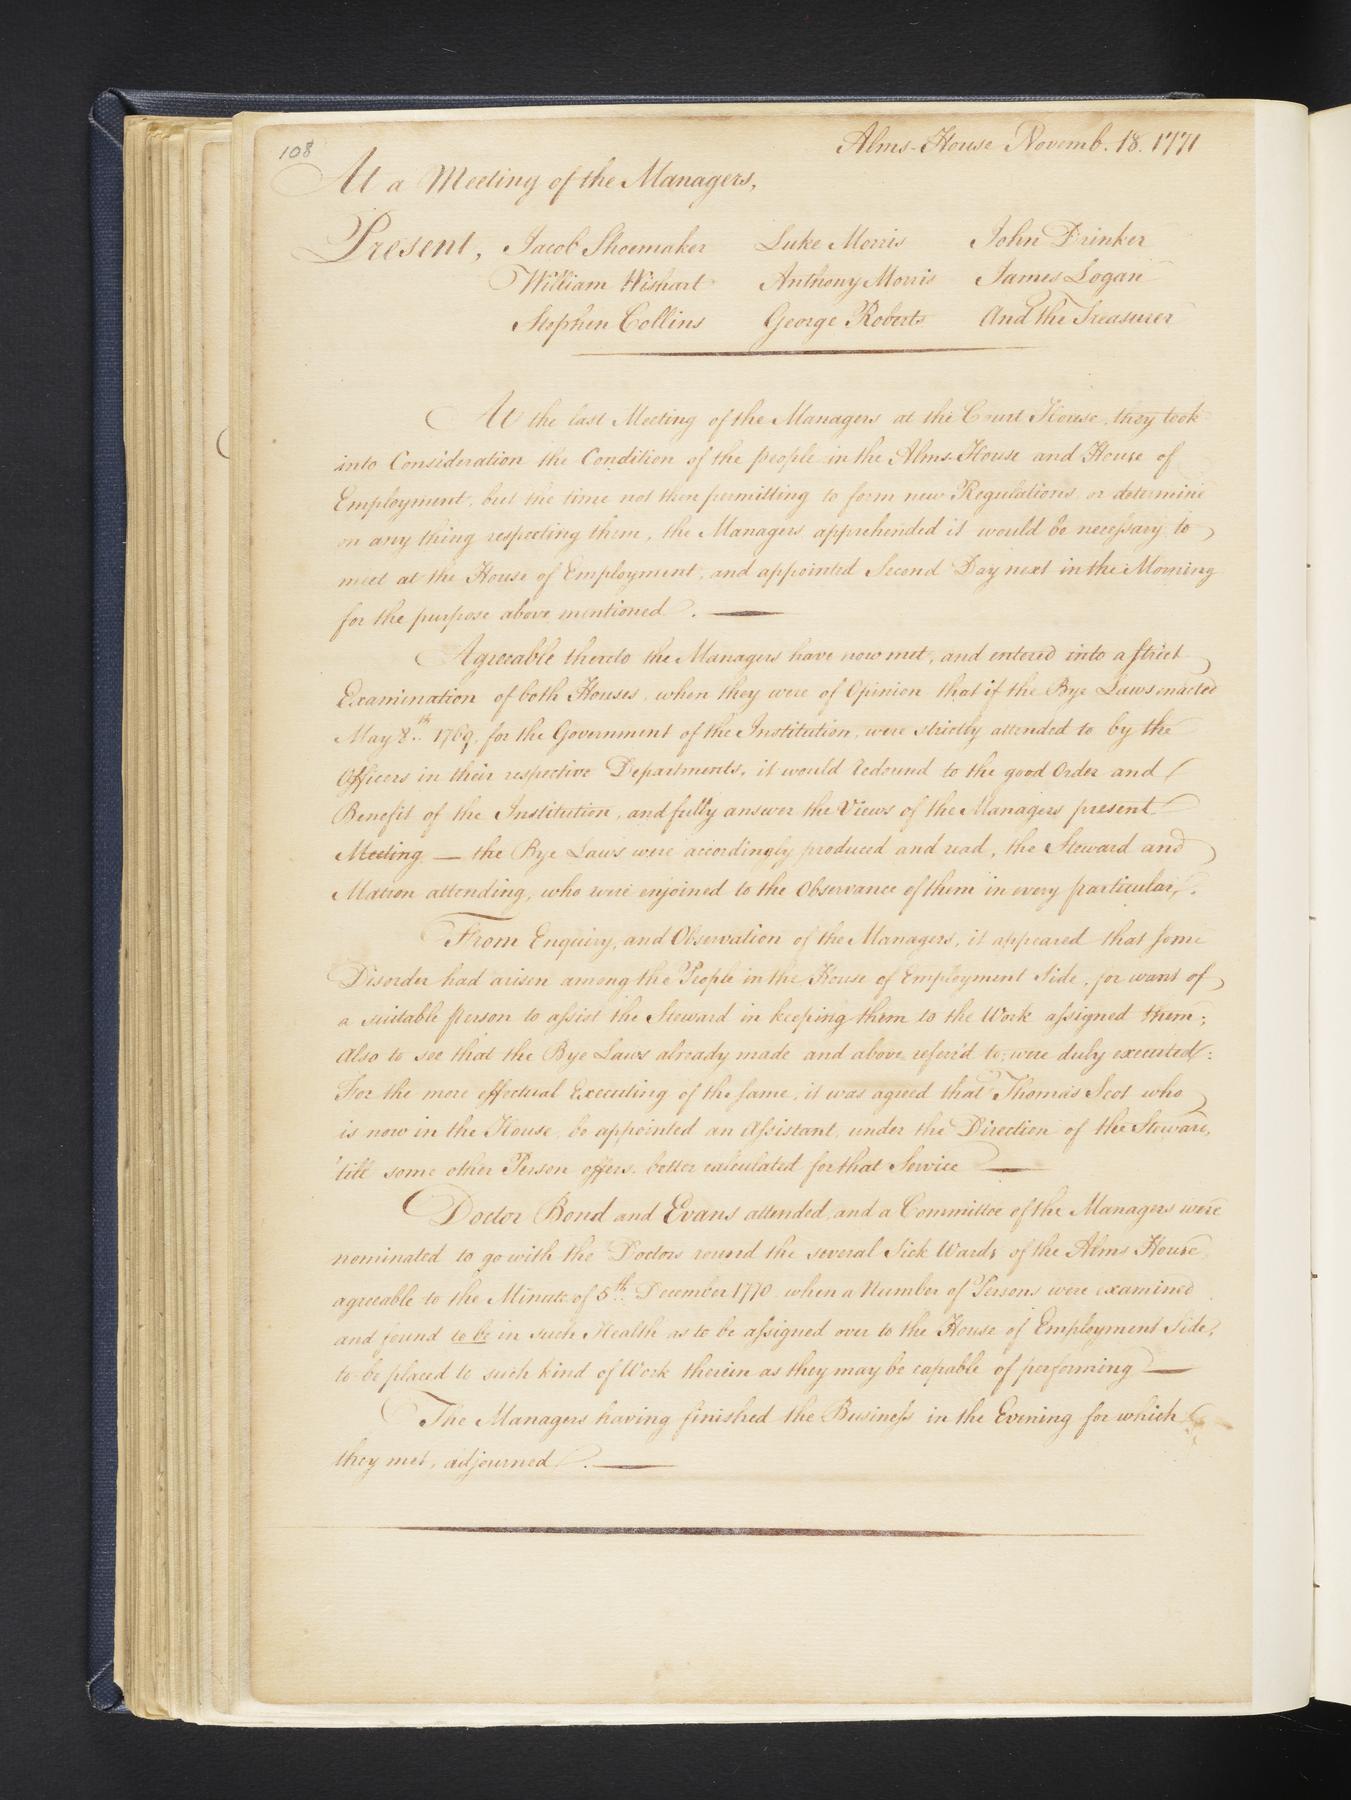 108
Alms-House Novemb. 18. 1771
At a Meeting of the Managers,
Present, Jacob Shoemaker Luke Morris John Drinker
William Wishart Anthony Morris James Logan
Stephen Collins George Roberts And the Treasurer
At the last Meeting of the Managers at the Court House, they took
into Consideration the Condition of the people in the Alms-House and House of
Employment, but the time not then permitting to form new Regulations, or determine
on any thing respecting them, the Managers apprehended it would be necessary to
meet at the House of Employment, and appointed Second Day next in the Morning
for the purpose above mentioned. —
Agreeable thereto the Managers have now met, and entered into a strict
Examination of both Houses, when they were of Opinion that if the Bye Laws enacted
May 8th. 1769, for the Government of the Institution, were strictly attended to by the
Officers in their respective Departments, it would redound to the good Order and
Benefit of the Institution, and fully answer the Views of the Managers present
Meeting — the Bye Laws were accordingly produced and read, the Steward and
Matron attending, who were enjoined to the Observance of them in every particular.
From Enquiry, and Observation of the Managers, it appeared that some
Disorder had arisen among the People in the House of Employment Side, for want of
a suitable person to assist the Steward in keeping them to the Work assigned them;
Also to see that the Bye Laws already made and above referr'd to, were duly executed:
For the more effectual Executing of the same, it was agreed that Thomas Scot who
is now in the House, be appointed an Assistant, under the Direction of the Steward,
'till some other Person offers, better calculated for that Service —
Doctor Bond and Evans attended, and a Committee of the Managers were
nominated to go with the Doctors round the several Sick Wards of the Alms House
agreeable to the Minute of 5th. December 1770. when a Number of Persons were examined
and found to be in such Health as to be assigned over to the House of Employment Side,
to be placed to such kind of Work therein as they may be capable of performing —
The Managers having finished the Business in the Evening for which
they met, adjourned. —